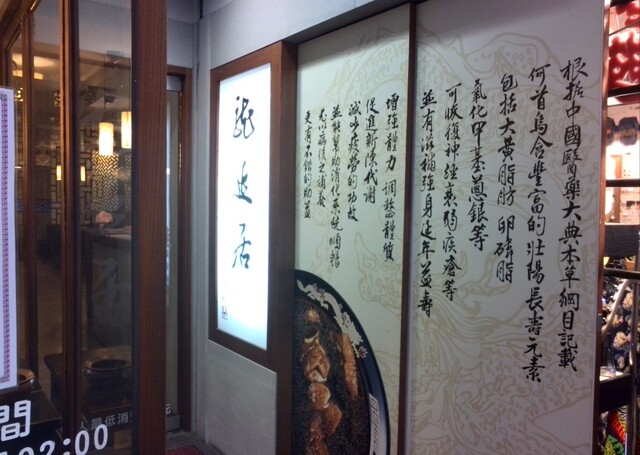 根据中國醫藥大典本草綱目記載
何首烏含豐富的壯陽長壽元素
包括大黃脂肪 卵磷脂
氧化甲基蔥銀等
可恢復神經衰弱疾瘡等
並有滋補強身延年益壽
增強體力 調整體質
促進新陳代謝
減少疲勞的功效
並能幫助消化系統順暢
尤以病後の調養
更有不錯的助益
居
間
02:00
人最低消